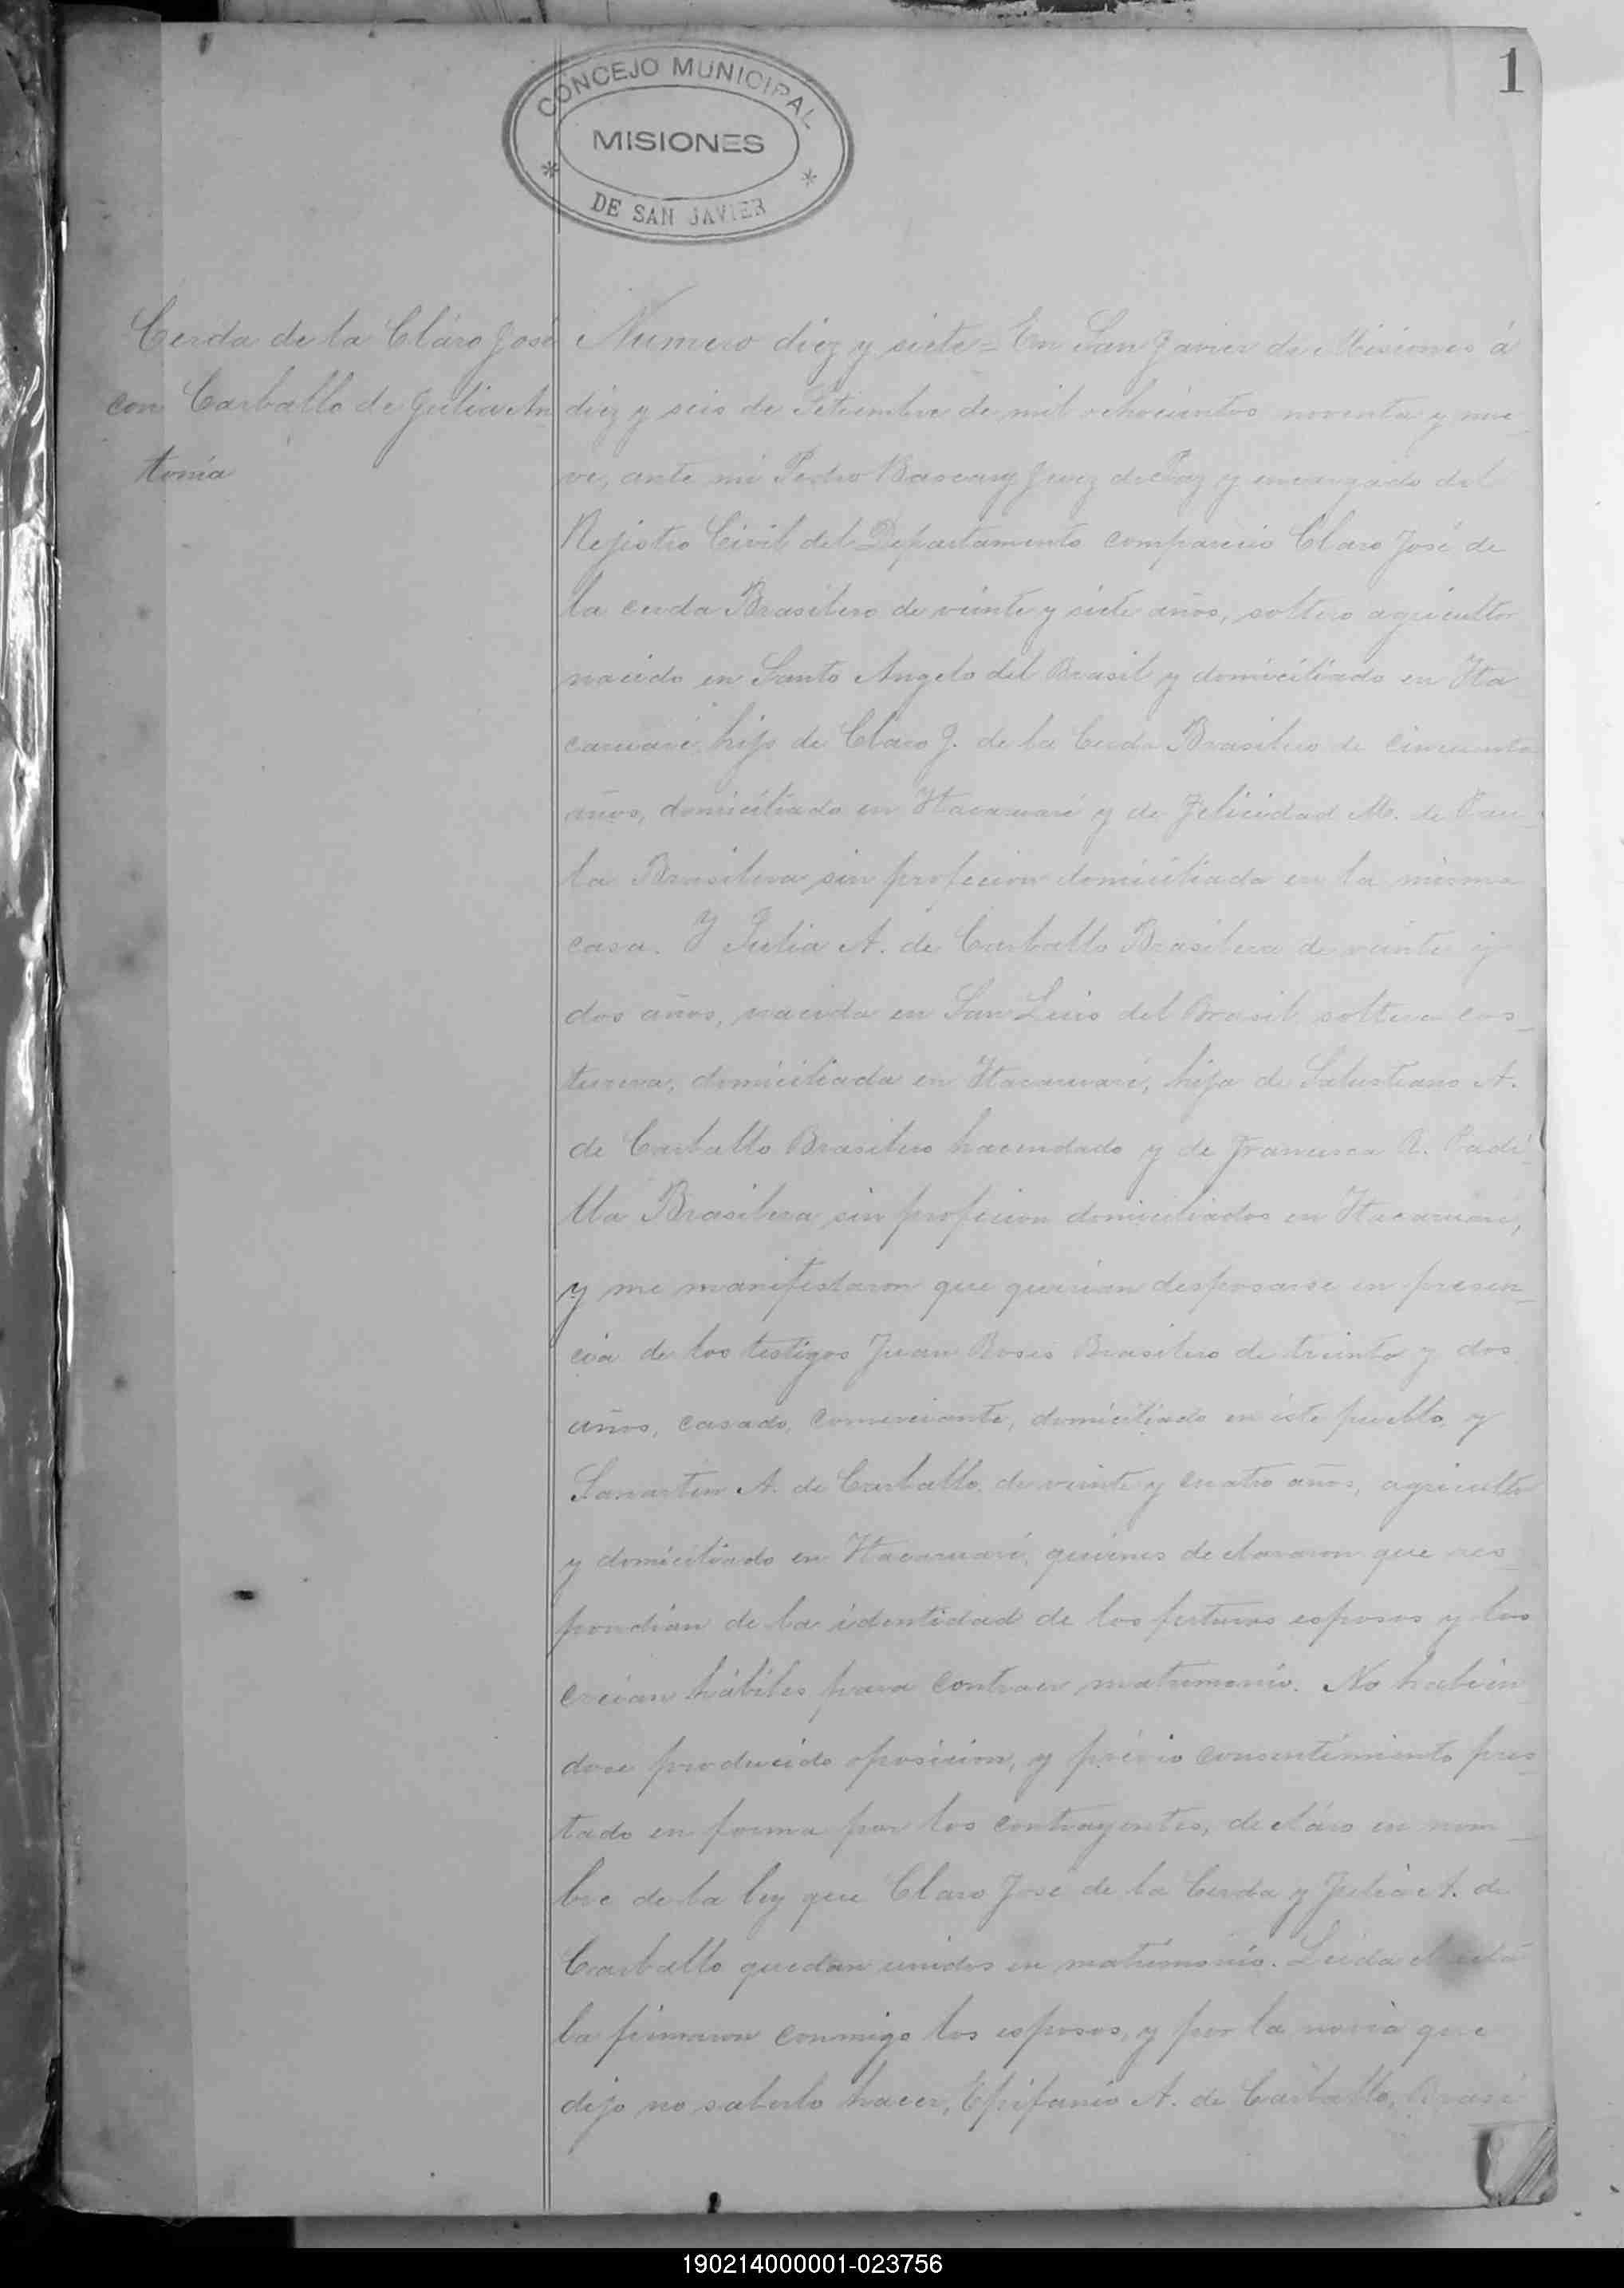 1
CONCEJO MUNICIPAL
MISIONES
DE SAN JAVIER
Cerda de la Cláro José
con Carballo de Julia An
tonia
Numero diez y siete = En San Javier de Misiones á
diez y seis de Setiembre de mil ochocientos noventa y nue_
ve, ante mi Pedro Juez de Paz y encargado del
Rejistro Civil del Departamento compareció Claro José de
la cerda Brasilero de veinte y siete años, soltero agricultor
nacido en Santo Angelo del Brasil y domiciliado en Ita
caruaré hijo de Claro J. de la Cerda Brasilero de cincuenta
años, domiciliado en Itacaruaré y de Felicidad M. de Pau_
la Brasilera sin profecion domiciliada en la misma
casa. Y Julia A. de Carballo Brasilera de veinte y
dos años, nacida en San Luis del Brasil soltera cos_
turera, domiciliada en Itacaruaré, hija de Salustiano A.
de Carballo Brasilero hacendado y de Francisca R. Padi
lla Brasilera sin profecion domiciliados en Itacaruaré,
y me manifestaron que querian desposarse en presen_
cia de los testigos Juan Brasilero de treinta y dos
años, casado, comerciante, domiciliado en éste pueblo, y
A. de Carballo, de veinte y cuatro años, agricultor
y domiciliado en Itacaruaré, quienes declararon que res_
pondian de la identidad de los futuros esposos y los
creian hábiles para contraer matrimonio. No habien
dose producido oposicion, y prévio consentimiento pres_
tado en forma por los contrayentes, declaro en nom_
bre de la ley que Claro José de la Cerda y Julia A. de
Carballo quedan unidos en matrimonio. Leida el acta
la firmaron conmigo los esposos, y por la novia que
dijo no saberlo hacer, Epifanio A. de Carballo, Brasi
190214000001-023756